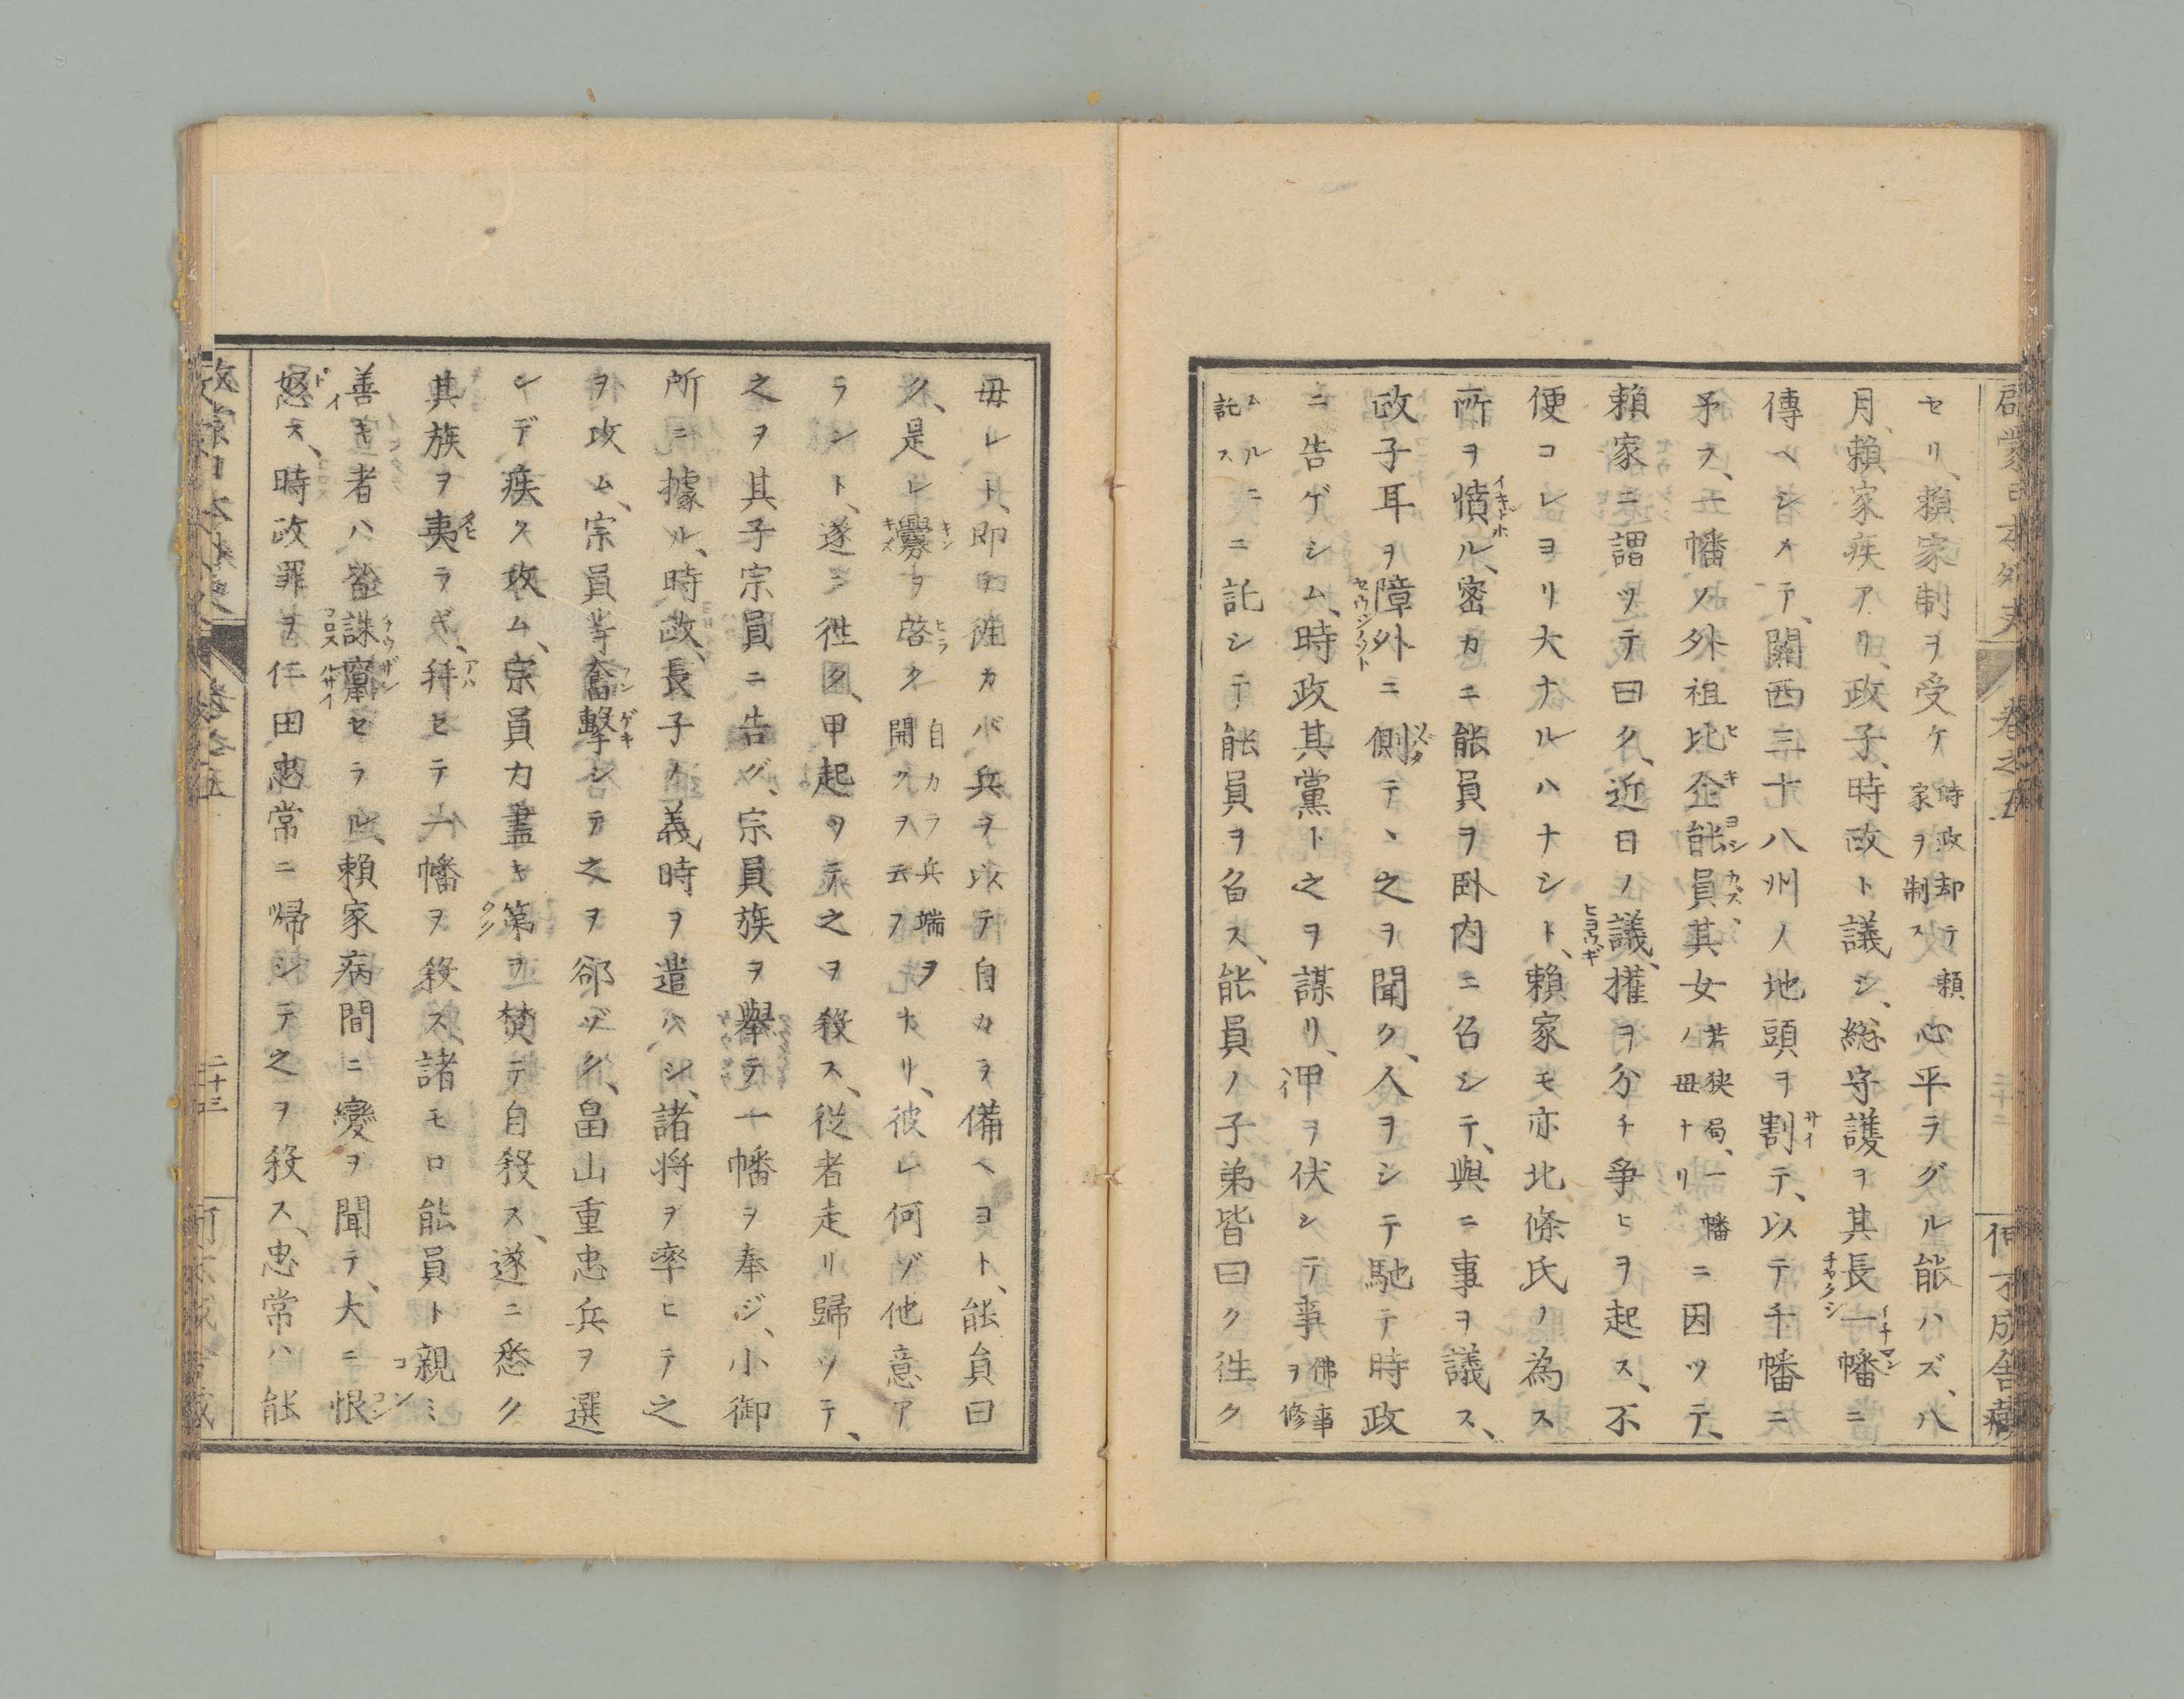 啓蒙日本外史 巻之五 何不成舎蔵
セリ、頼家制ヲ受ケ 時政却テ頼家ヲ制ス 心平ラグル能ハズ、八
月、頼家疾アリ、政子、時政ト議シ、総守護ヲ其長チャクシ一幡イチマンニ
傳ヘシメテ、關西三十八州ノ地頭ヲ割サイテ、以テ千幡ニ
予ヲ、一幡ノ外祖比ヒ企キ能ヨシ員カズ、其女 若狭局、一幡ノ母ナリ ニ因ツテ、
頼家ニ謂ツテ曰ク、近日ノ議ヒヨウギ、權ヲ分チ争ヒヲ起ス、不
便コレヨリ大ナルハナシト、頼家モ亦北條氏ノ為ス
所ヲ憤イキドホル、密カニ能員ヲ卧内ニ召シテ、與ニ事ヲ議ス、
政子耳ヲ障外セウジノソトニ側ソバダテヽ之ヲ聞ク、人ヲシテ馳テ時政
ニ告ゲシム、時政其黨ト之ヲ謀リ、甲ヲ伏シテ事 佛事ヲ修
ムルニ託ス ニ託シテ能員ヲ召ス、能員ノ子弟皆曰ク徃ク
毋レト、即シ徃カバ兵ヲ以テ自カラ備ヘヨト、能員曰
ク、是レ釁キンキズヲ啓ヒラク 自カラ兵端ヲ開クヲ云フ ナリ、彼レ何ゾ他意ア
ラント、遂ニ徃ク、甲起ツテ之ヲ殺ス、従者走リ歸ツテ、
之ヲ其子宗員ニ告グ、宗員族ヲ舉テ一幡ヲ奉ジ、小御
所ニ據ル、時政、長子ノ義時ヲ遣ハシ、諸将ヲ率ヒテ之
ヲ攻ム、宗員等奮フン擊ゲキシテ之ヲ郤ゾク、畠山重忠兵ヲ選
ンデ疾ク攻ム、宗員力盡キ第ヲ焚テ自殺ス、遂ニ悉ク
其族ヲ夷タヒラギ、并アハヒテ一幡ヲ殺ス、諸モロ能員ト親ミ
善キ者ハ皆誅チウ竄ザンコロスルサイセラル、頼家病間ニ變ヲ聞テ、大ニ恨コン
怒ドイス、時政罪ヲ仁田忠常ニ帰シテ之ヲ殺ス、忠常ハ能
啓蒙日本外史 巻之五 二十三 何不成舎蔵